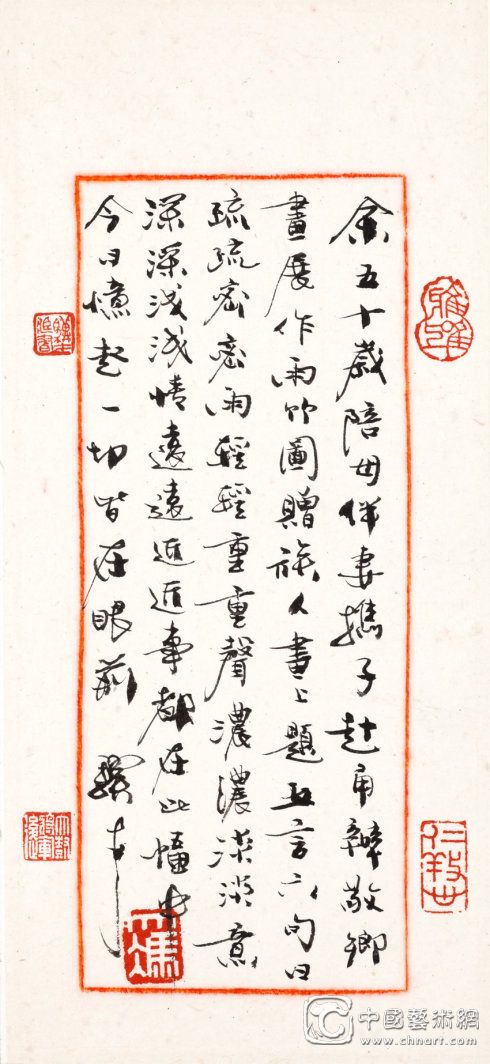 余五十歲陪母伴妻攜子赴甬辦敬鄉
畫展作雨竹圖贈族人畫上題五言六句曰
疏疏密密雨輕輕重重聲濃濃淡淡意
深深浅浅情遠遠近近事都在此幅中
今日憶起一切皆在眼前 驥才
大樹將軍後
中國藝術網
www.chnart.com